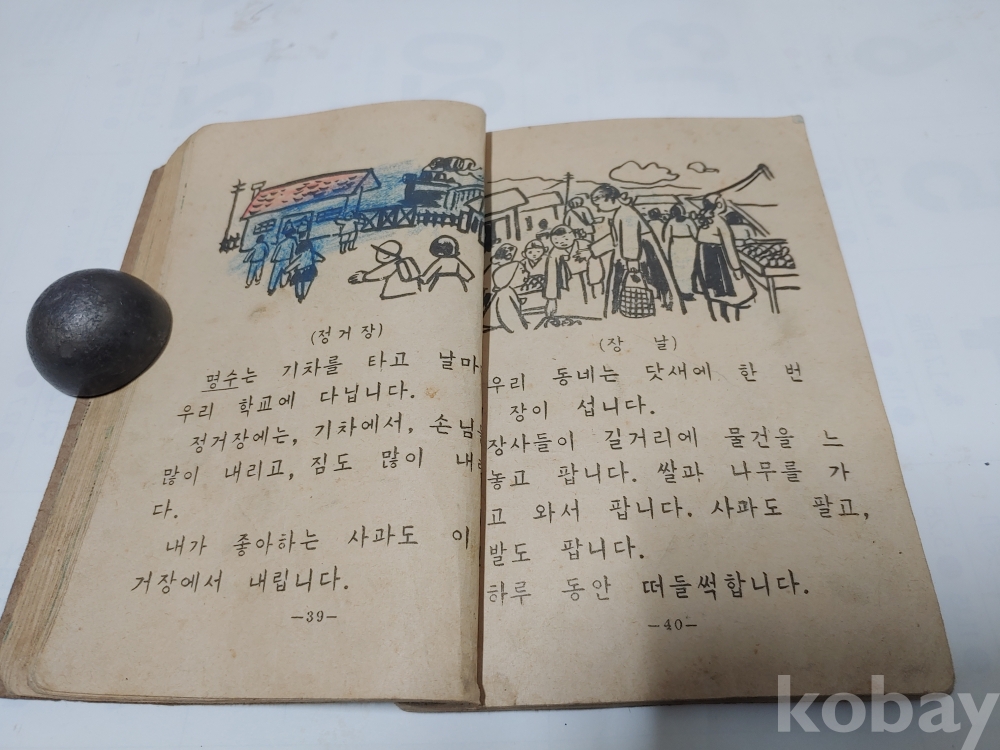 (정거장)
명수는 기차를 타고 날마
우리 학교에 다닙니다.
정거장에는, 기차에서, 손님
많이 내리고, 짐도 많이
다.
내가 좋아하는 사과도 이
거장에서 내립니다.
—39—
(장 날)
우리 동네는 닷새에 한 번
장이 섭니다.
장사들이 길거리에 물건을 느
놓고 팝니다. 쌀과 나무를 가
고 와서 팝니다. 사과도 팔고,
발도 팝니다.
하루 동안 떠들썩합니다.
—40—
kobay